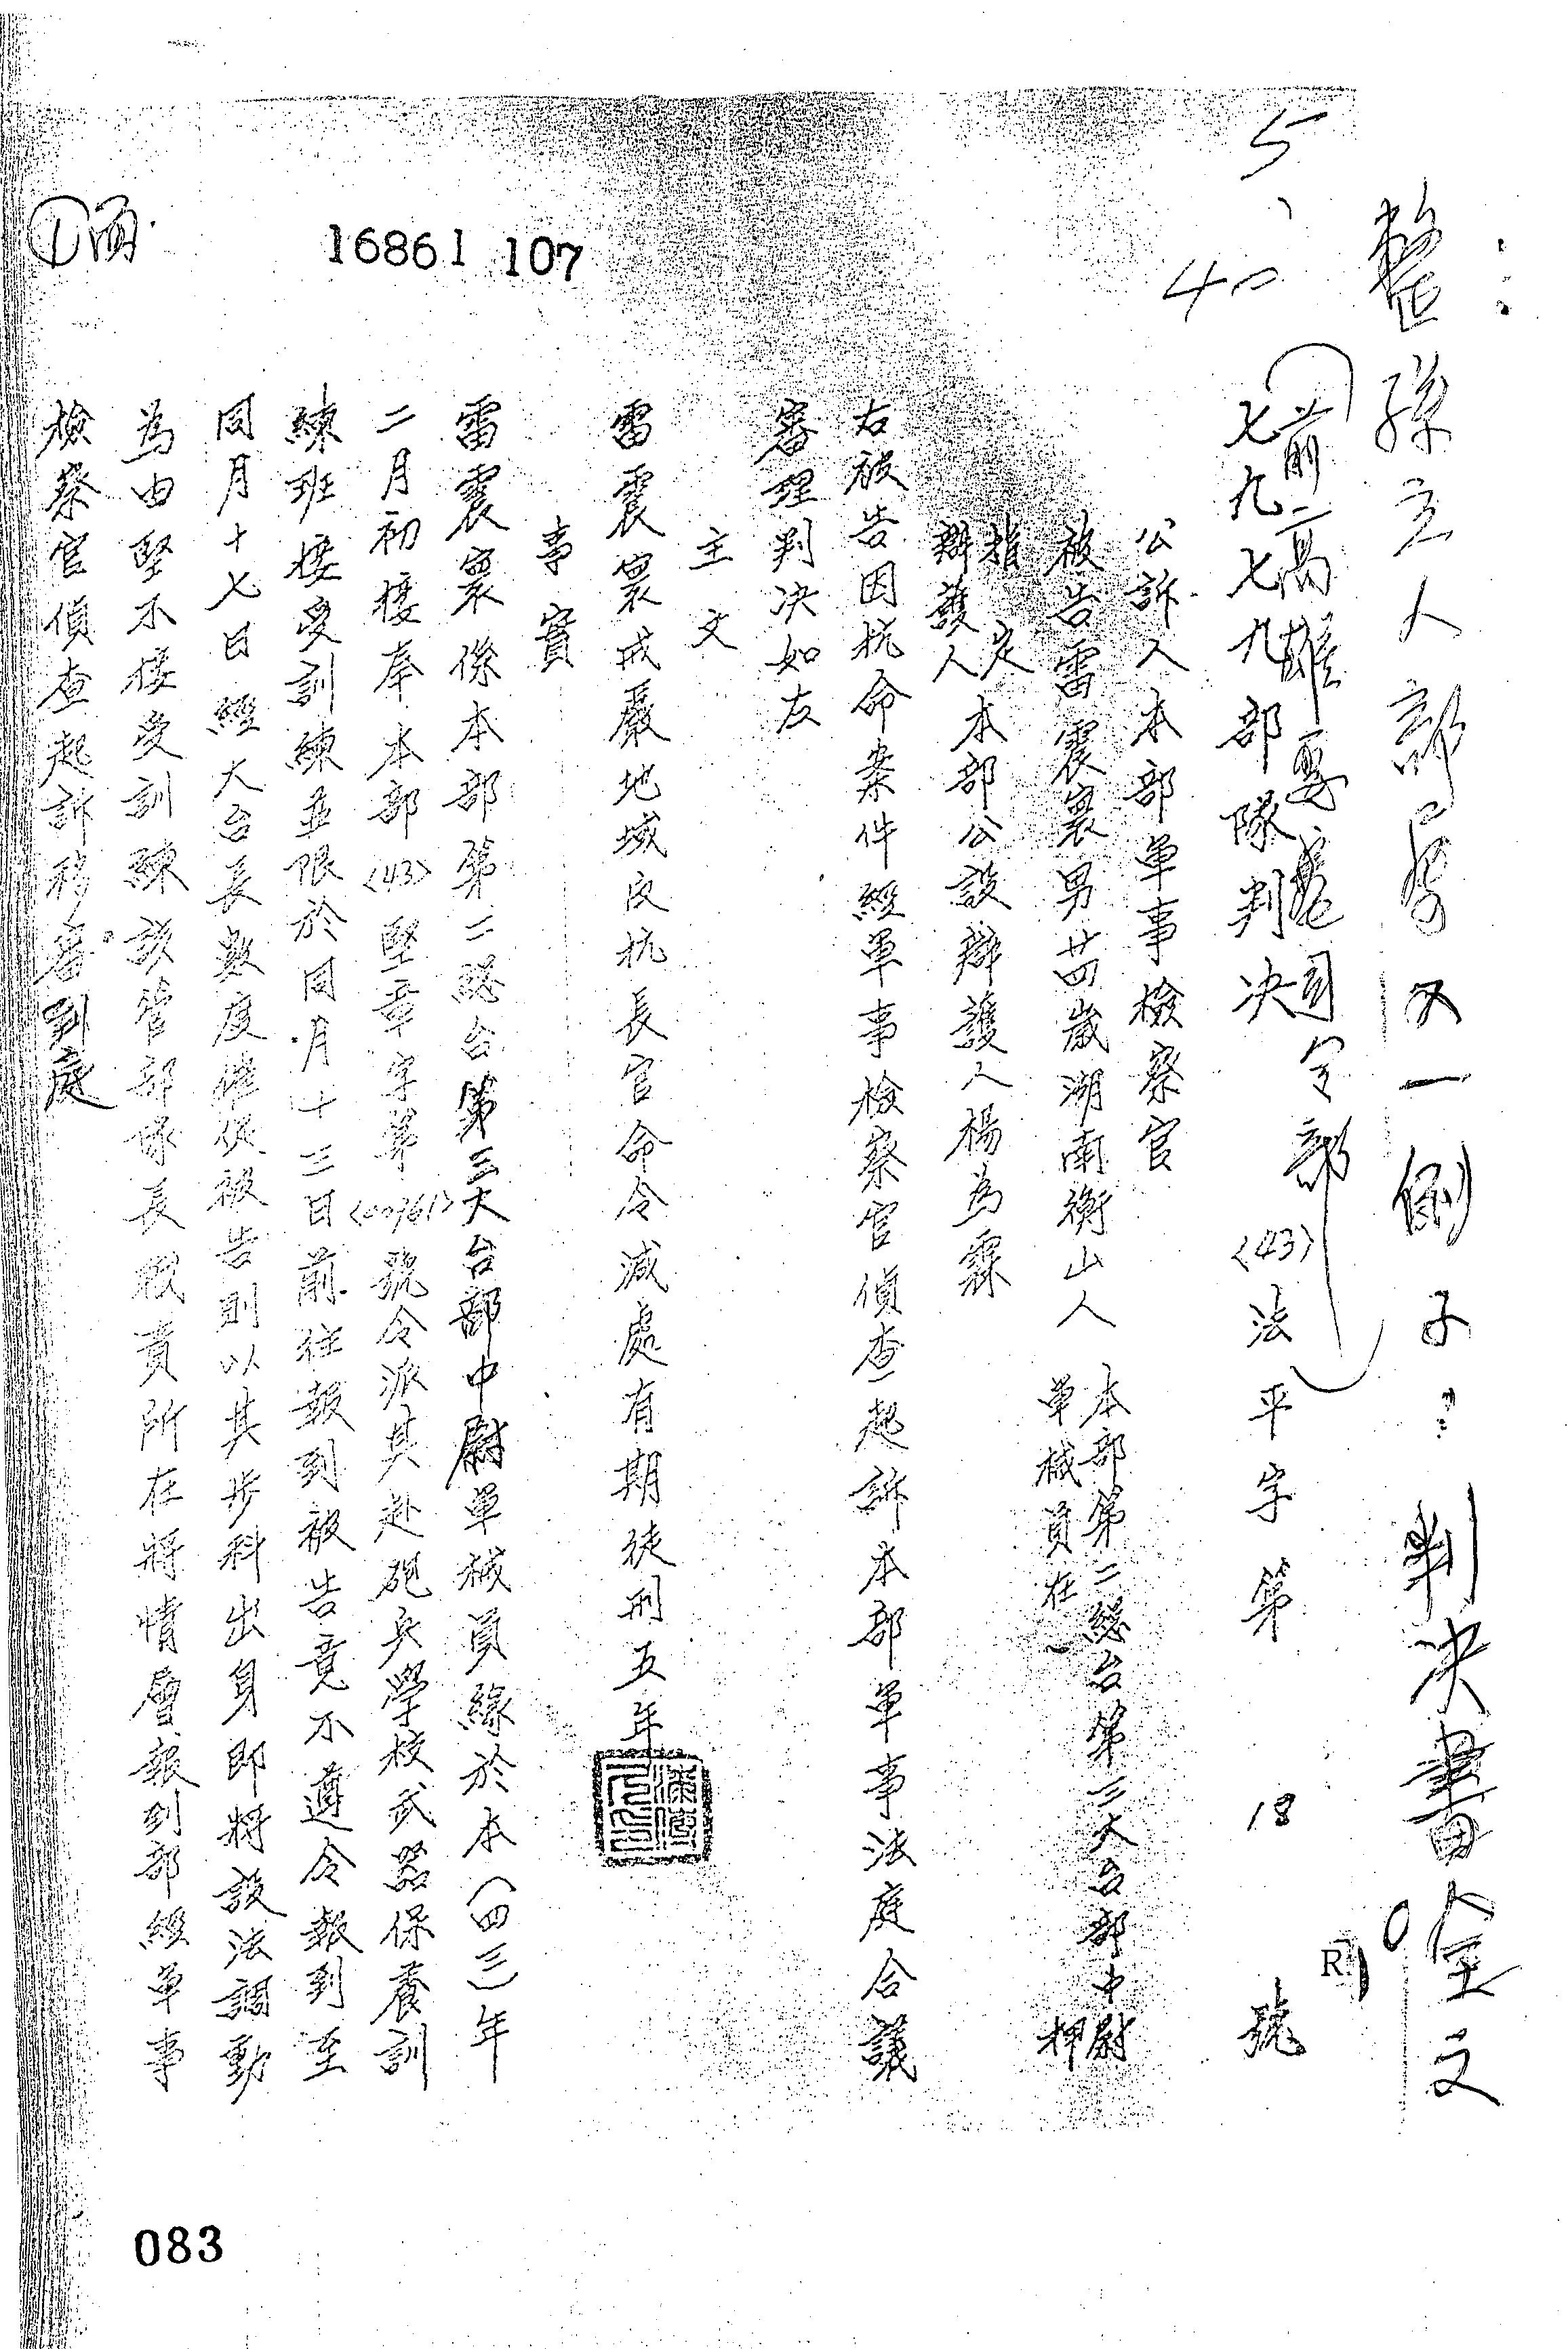 整孫立人部屬又一例子：判決書全文
5、40
（前高雄要塞司令部）
七九七九部隊判決 〈43〉法平字第 18 號
公訴人本部軍事檢察官
被告雷震寰男廿四歲湖南衡山人 本部第二總台第三大台部中尉軍械員在押
指定辯護人 本部公設辯護人楊為霖
右被告因抗命案件經軍事檢察官偵查起訴本部軍事法庭合議
審理判决如左
主文
雷震寰戒嚴地域反抗長官命令減處有期徒刑五年
事實
雷震寰係本部第二總台第三大台部中尉軍械員緣於本（四三）年
二月初接奉本部〈43〉堅章字第號令派其赴砲兵學校武器保養訓
練班接受訓練並限於同月十三日前往報到被告竟不遵令報到至
同月十七日經大台長數度催促被告則以其步科出身即將設法調動
為由堅不接受訓練該管部隊長職責所在將情層報到部經軍事
檢察官偵查起訴移審到庭
16861 107
①面
R
083